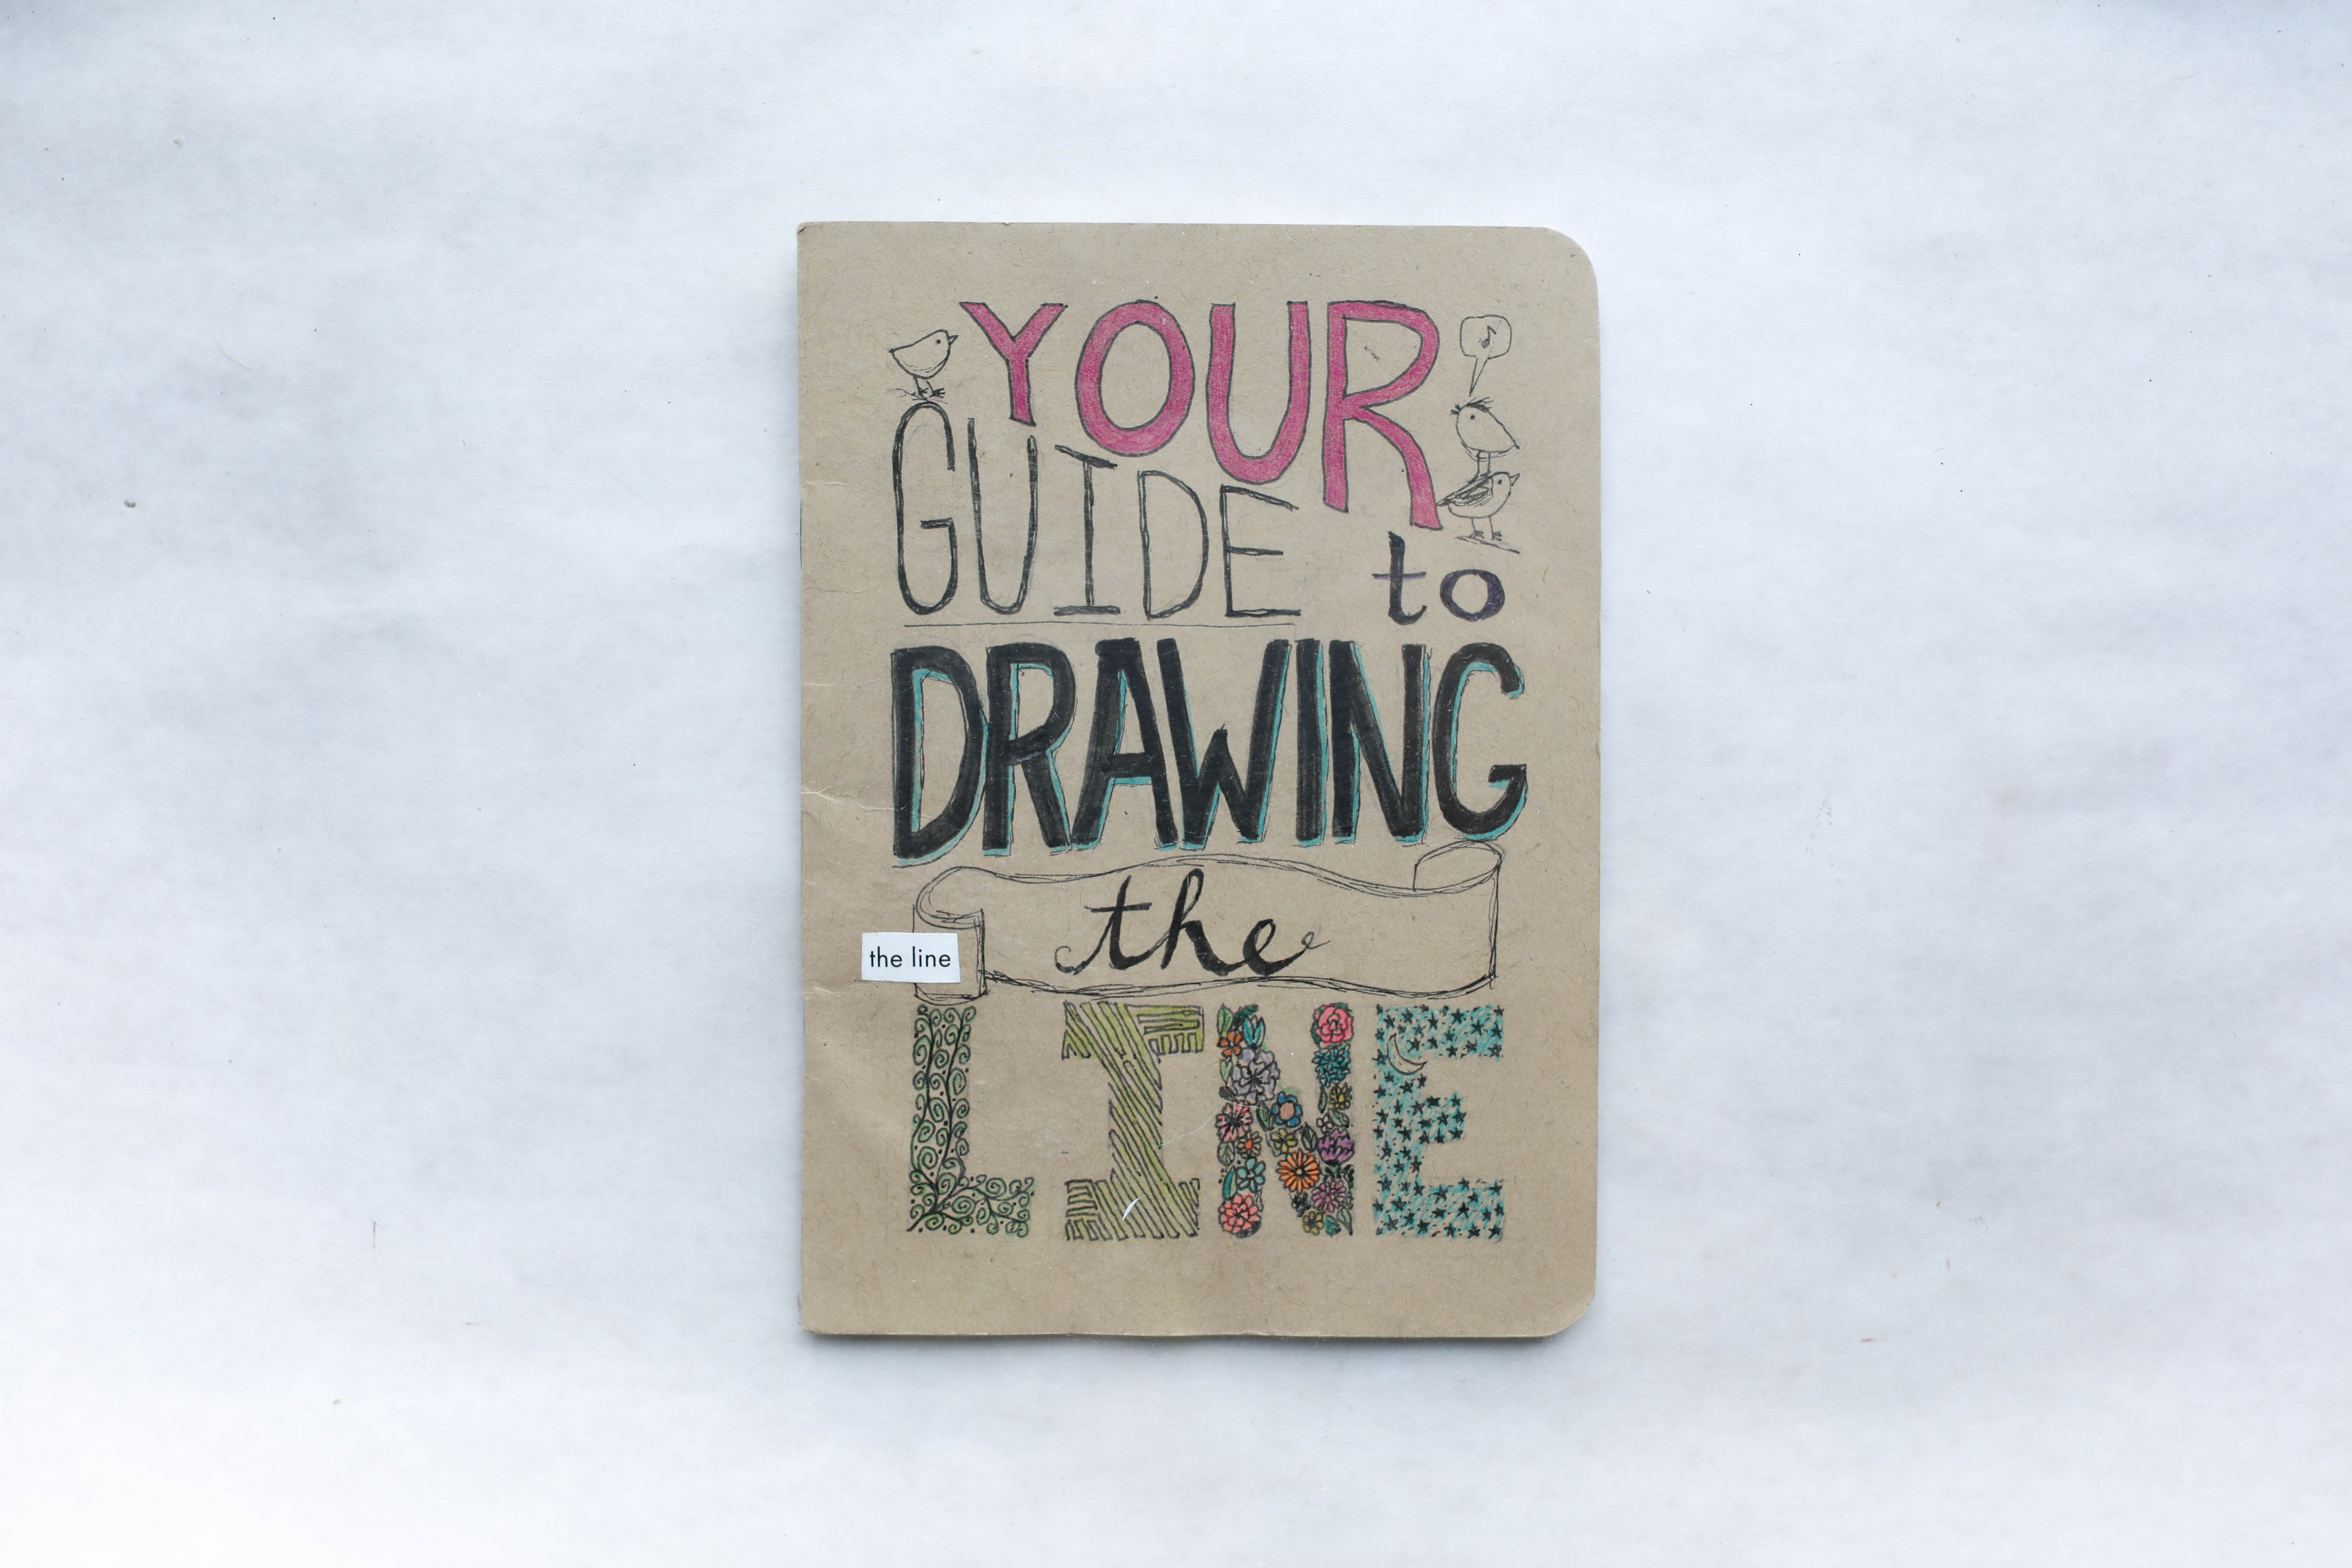 YOUR
GUIDE to
DRAWING
the
the line
LINE